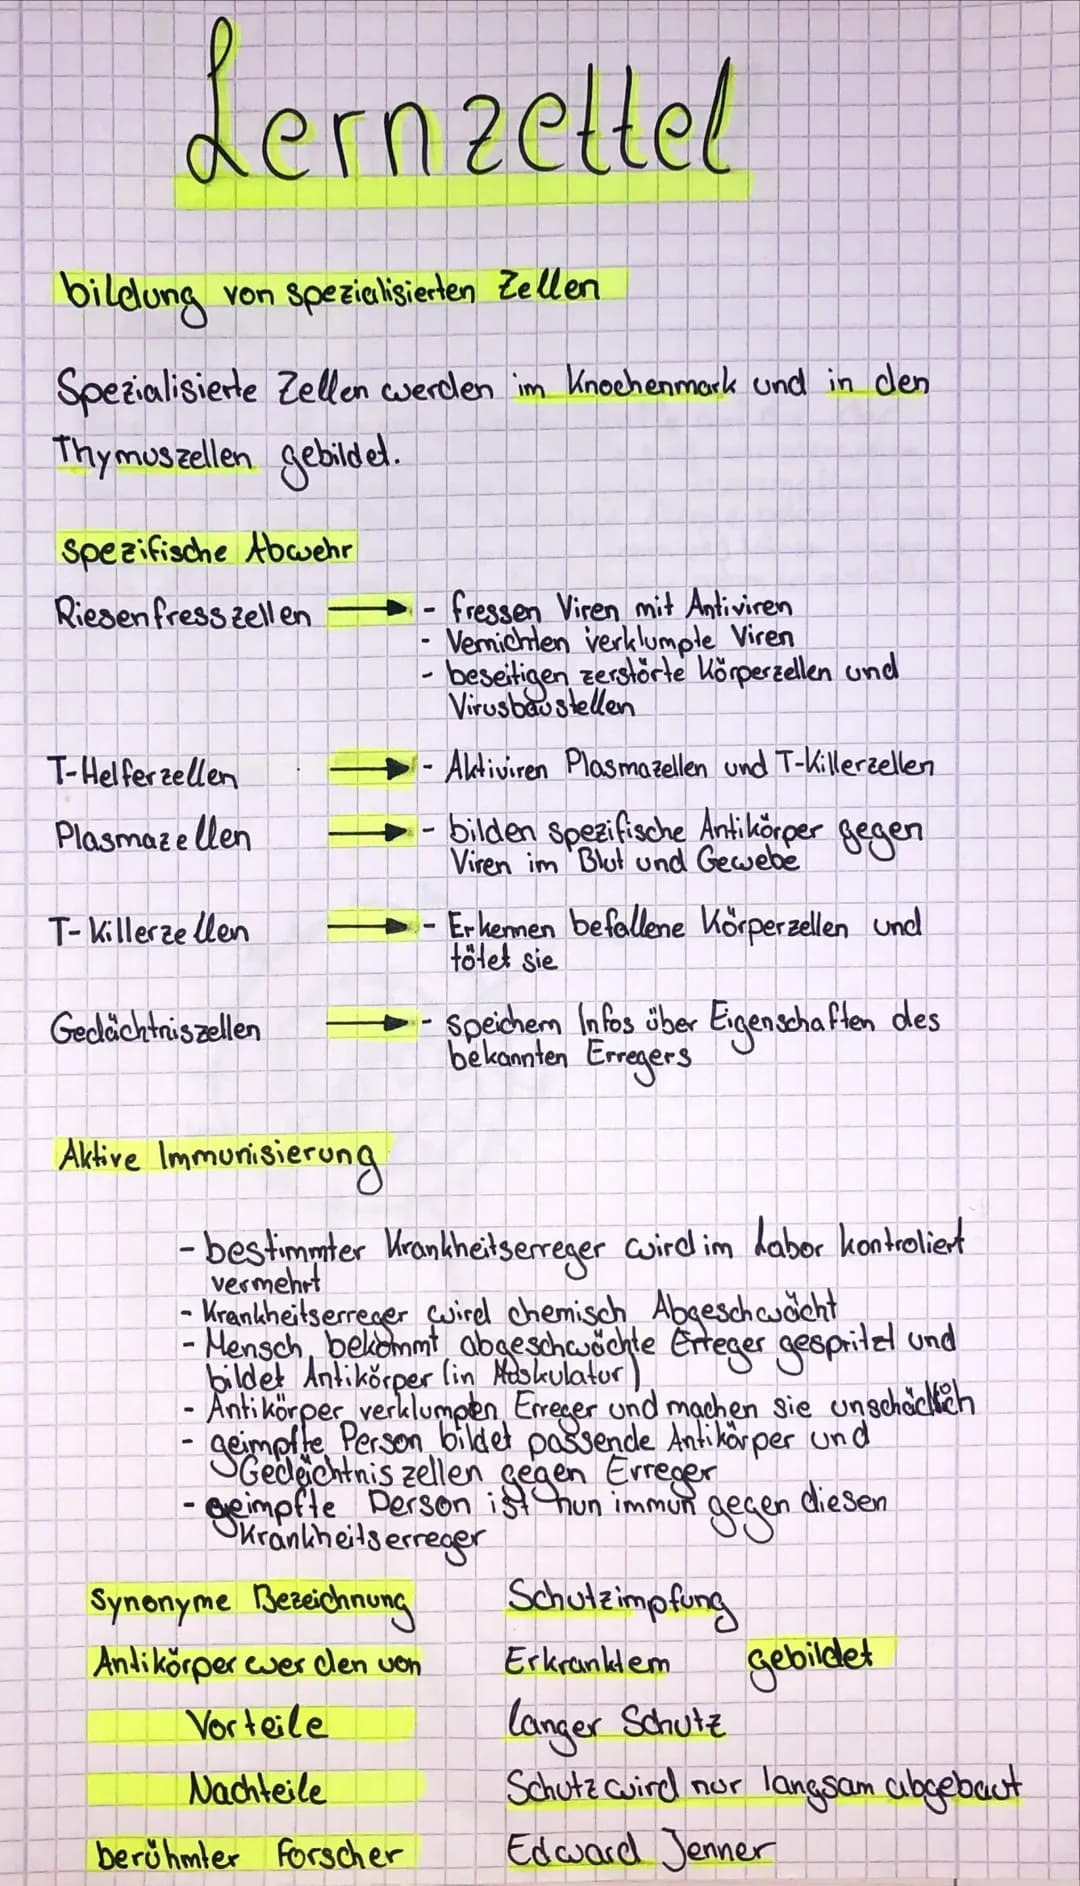 Lernzettel
bildung von spezialisierten Zellen
Spezialisierte Zellen werden im Knochenmark und in den
Thymuszellen gebildet.
spezifische Abwehr
Riesenfresszellen → - fressen Viren mit Antiviren
- Vernichten verklumpte Viren
- beseitigen zerstörte Körperzellen und
Virusbaustellen
T-Helferzellen → - Aktiviren Plasmazellen und T-Killerzellen
Plasmazellen → - bilden spezifische Antikörper gegen
Viren im Blut und Gewebe
T-Killerzellen → - Erkennen befallene Körperzellen und
tötet sie
Gedächtniszellen → - speichern Infos über Eigenschaften des
bekannten Erregers
Aktive Immunisierung
- bestimmter Krankheitserreger wird im Labor kontroliert
vermehrt
- Krankheitserreger wird chemisch Abgeschwächt
- Mensch bekommt abgeschwächte Erreger gespritzt und
bildet Antikörper (in Muskulatur)
- Antikörper verklumpen Erreger und machen sie unschädlich
- geimpfte Person bildet passende Antikörper und
Gedächtniszellen gegen Erreger
- geimpfte Person ist nun immun gegen diesen
Krankheitserreger
Synonyme Bezeichnung Schutzimpfung
Antikörper werden von Erkranktem gebildet
Vorteile langer Schutz
Nachteile Schutz wird nur langsam abgebaut
berühmter Forscher Edward Jenner